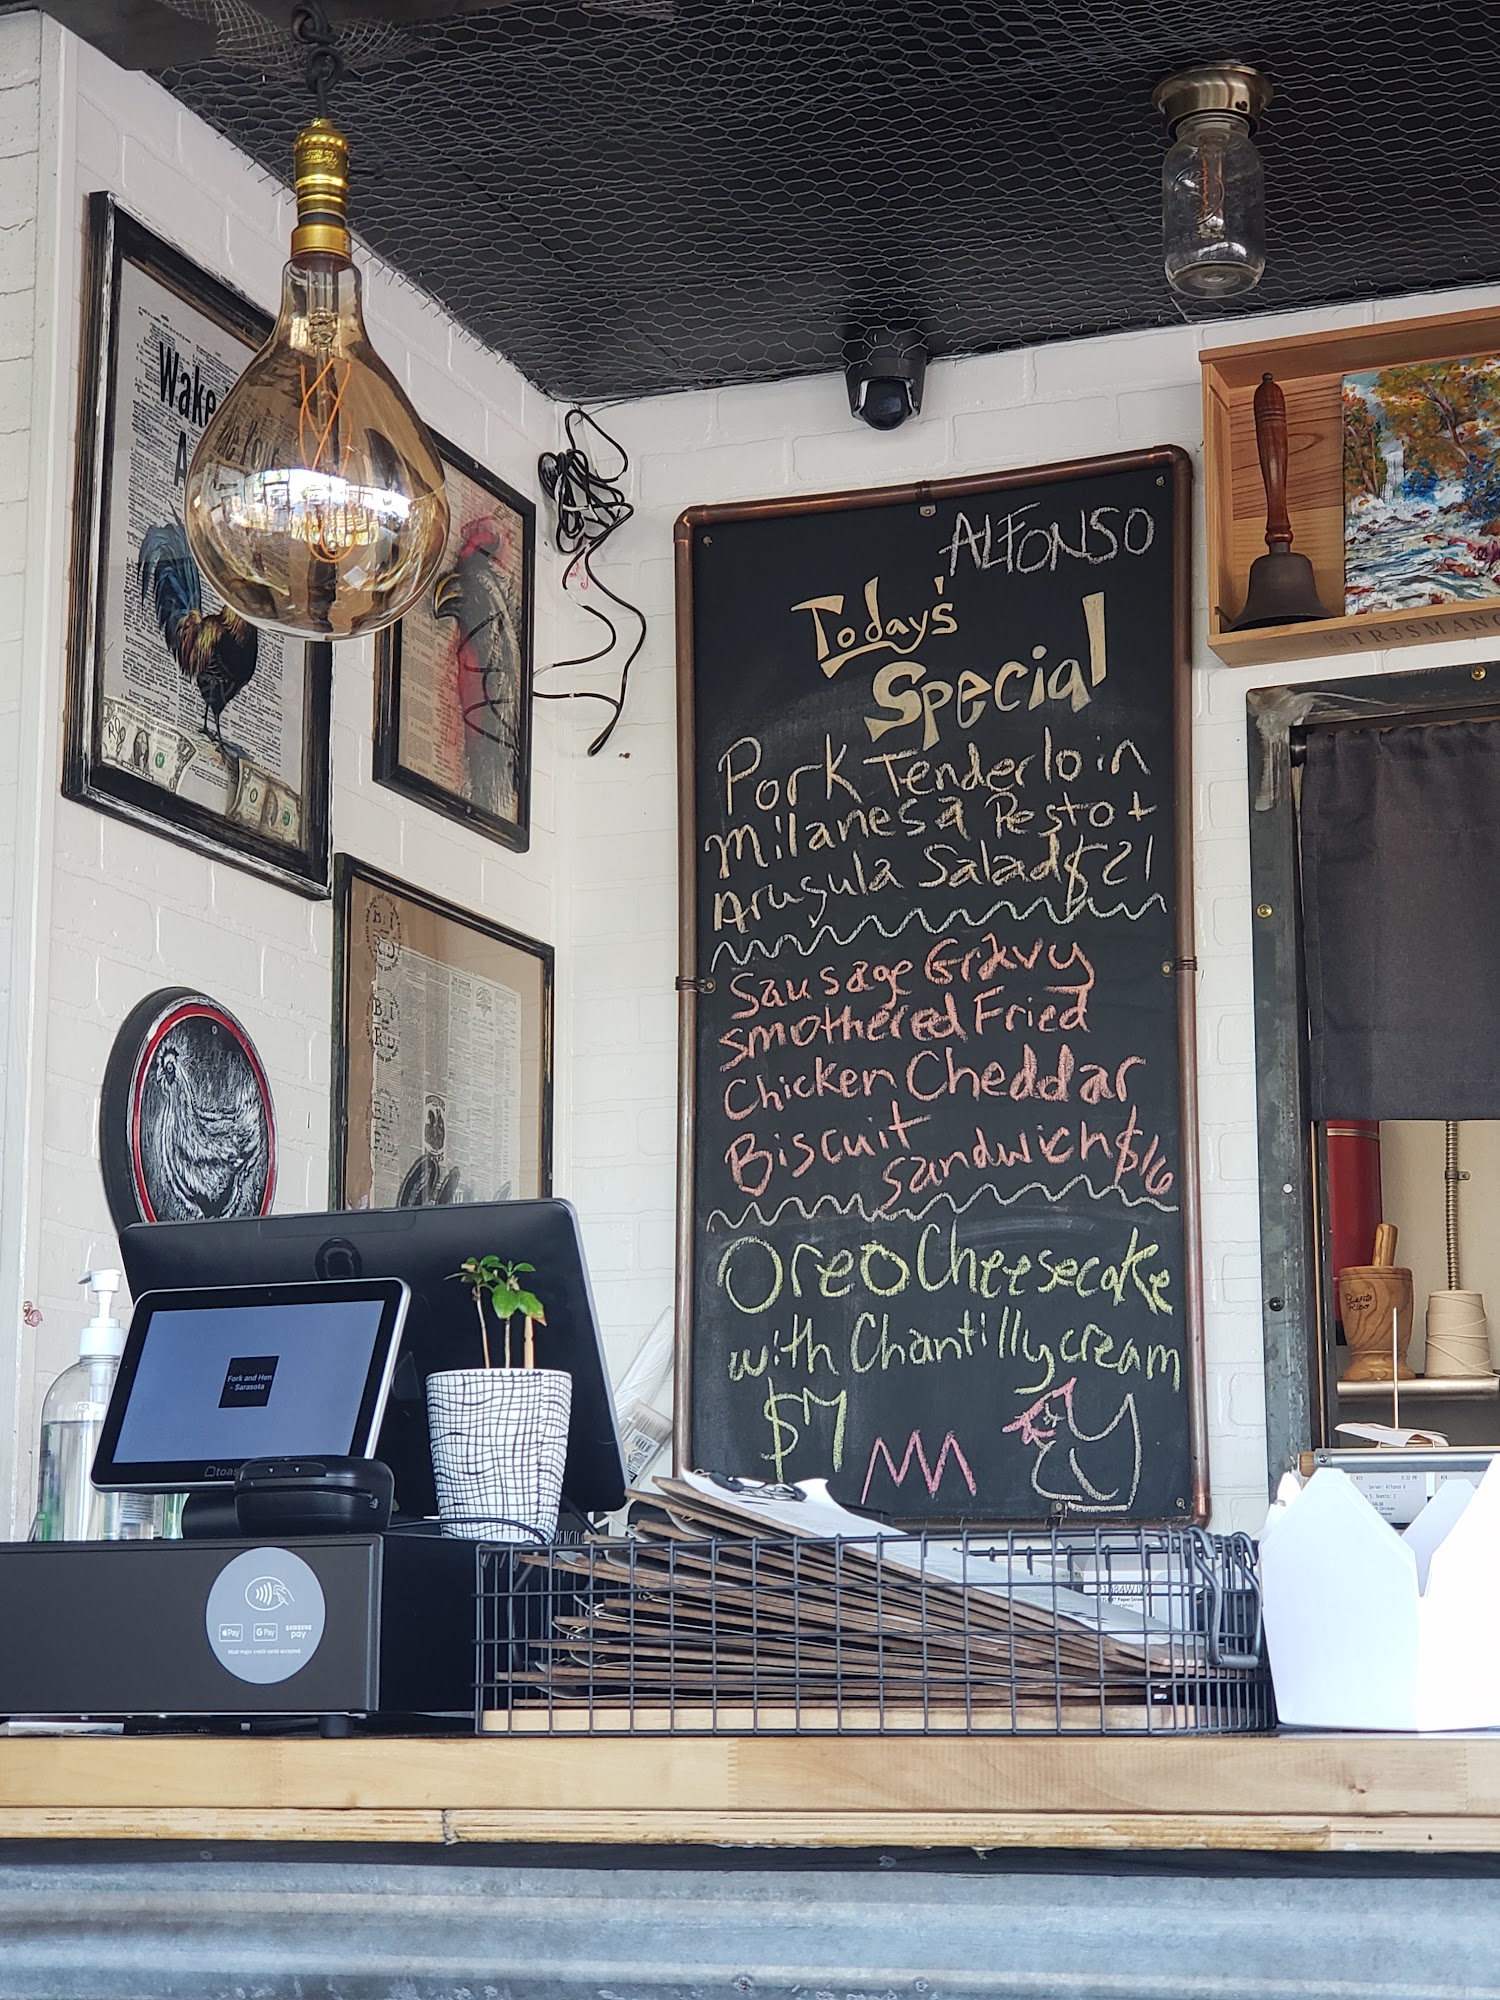 ALFONSO
Today's
Special
Pork Tenderloin
Milanesa Pesto +
Arugula Salad $21
Sausage Gravy
Smothered Fried
Chicken Cheddar
Biscuit
Sandwich $16
Oreo Cheesecake
with Chantilly cream
$7
Wake
A
BIRD
BIRD
TR3SMANO
Puerto
Rico
Fork and Hen
- Sarasota
toas
Pay
G Pay
SAMSUNG
pay
Most major credit cards accepted
Server: Alfonso